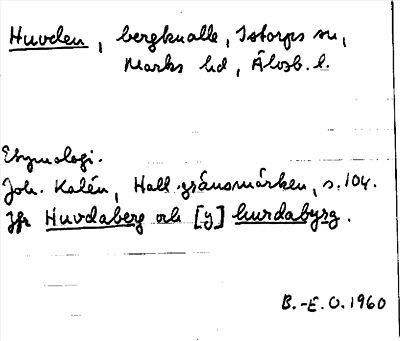 Huvden, bergknalle, Istorps sn,
Marks hd, Älvsb. l.
Etymologi.
Joh. Kalén, Hall. gränsmärken, s. 104.
Jfr Huvdaberg och [y] huvdabyrg.
B.-E. O. 1960